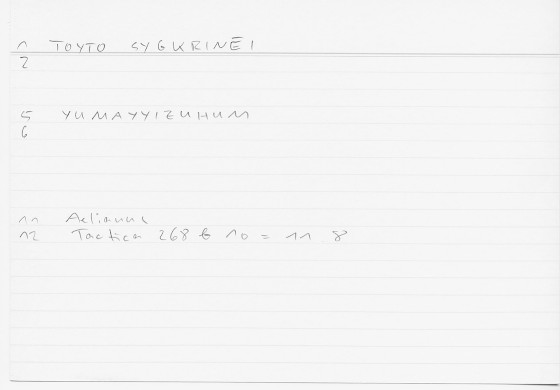 1 TOYTO SYGKRINEI
2
5 YUMAYYIZUHUM
6
11 Aelianus
12 Tactica 268 b 10 = 11 8